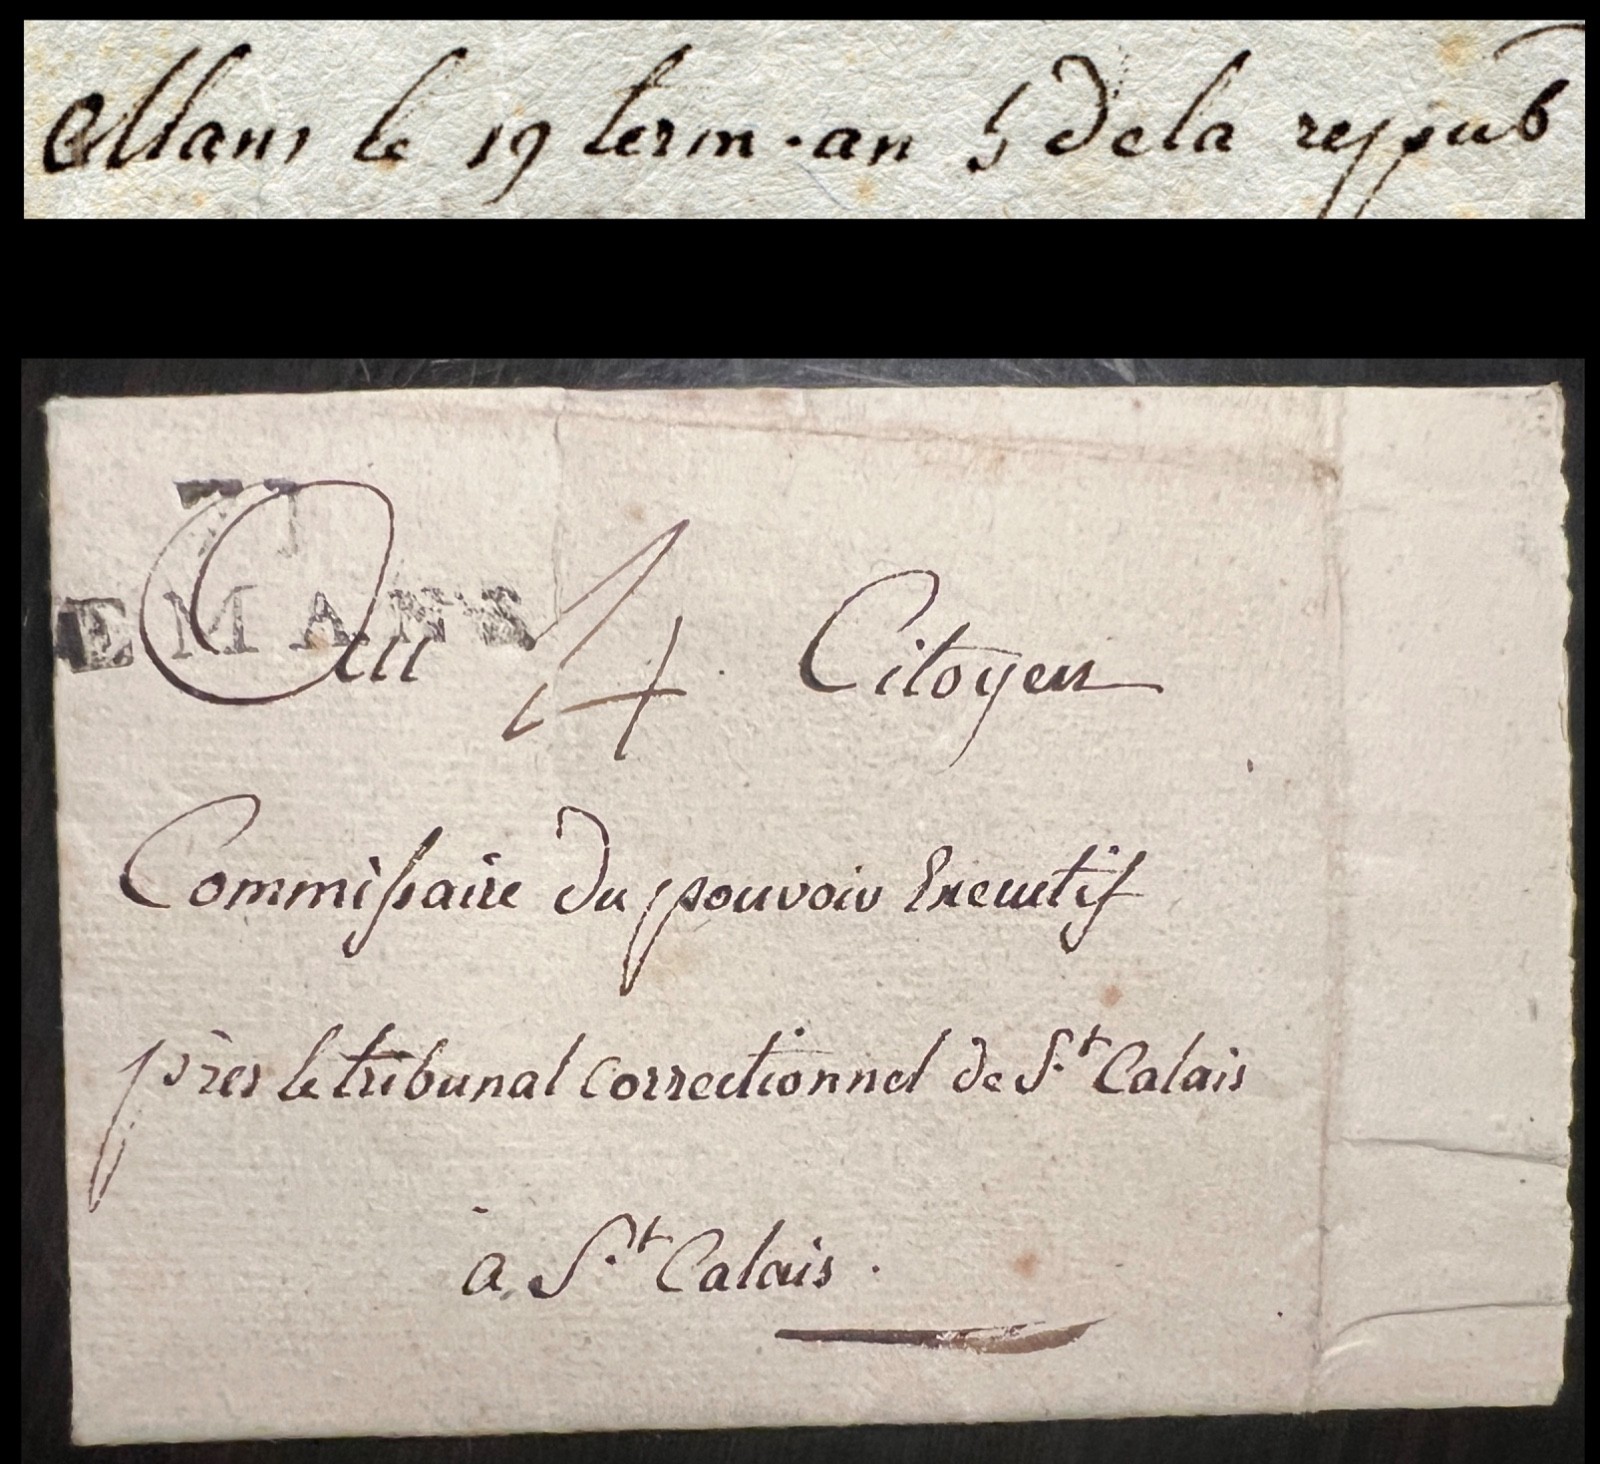 Mans le 19 term. an 5 de la repub
71
E MANS
Au 4 Citoyen
Commissaire du pouvoir Executif
près le tribunal correctionnel de St Calais
à St Calais.